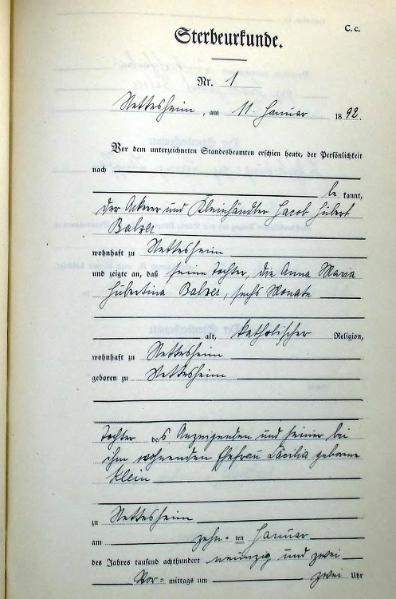 C. c.
Sterbeurkunde.
Nr. 1
Nettesheim, am 11 Januar 1892.
Vor dem unterzeichneten Standesbeamten erschien heute, der Persönlichkeit
nach
be kannt,
der Ackerer und Kleinhändler Jacob Hubert
Balzer
wohnhaft zu Nettesheim
und zeigte an, daß seine Tochter, die Anna Maria
Hubertina Balzer, sechs Monate
alt, katholischer Religion,
wohnhaft zu Nettesheim
geboren zu Nettesheim
Tochter des Anzeigenden und seiner bei
ihm wohnenden Ehefrau Cäcilia geborene
Klein
zu Nettesheim
am zehn-ten Januar
des Jahres tausend achthundert neunzig und zwei
Vor-mittags um zwei Uhr